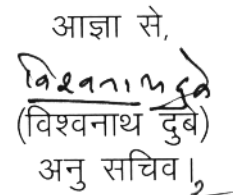 आज्ञा से,
विश्वनाथ दुबे
(विश्वनाथ दुबे)
अनु सचिव।